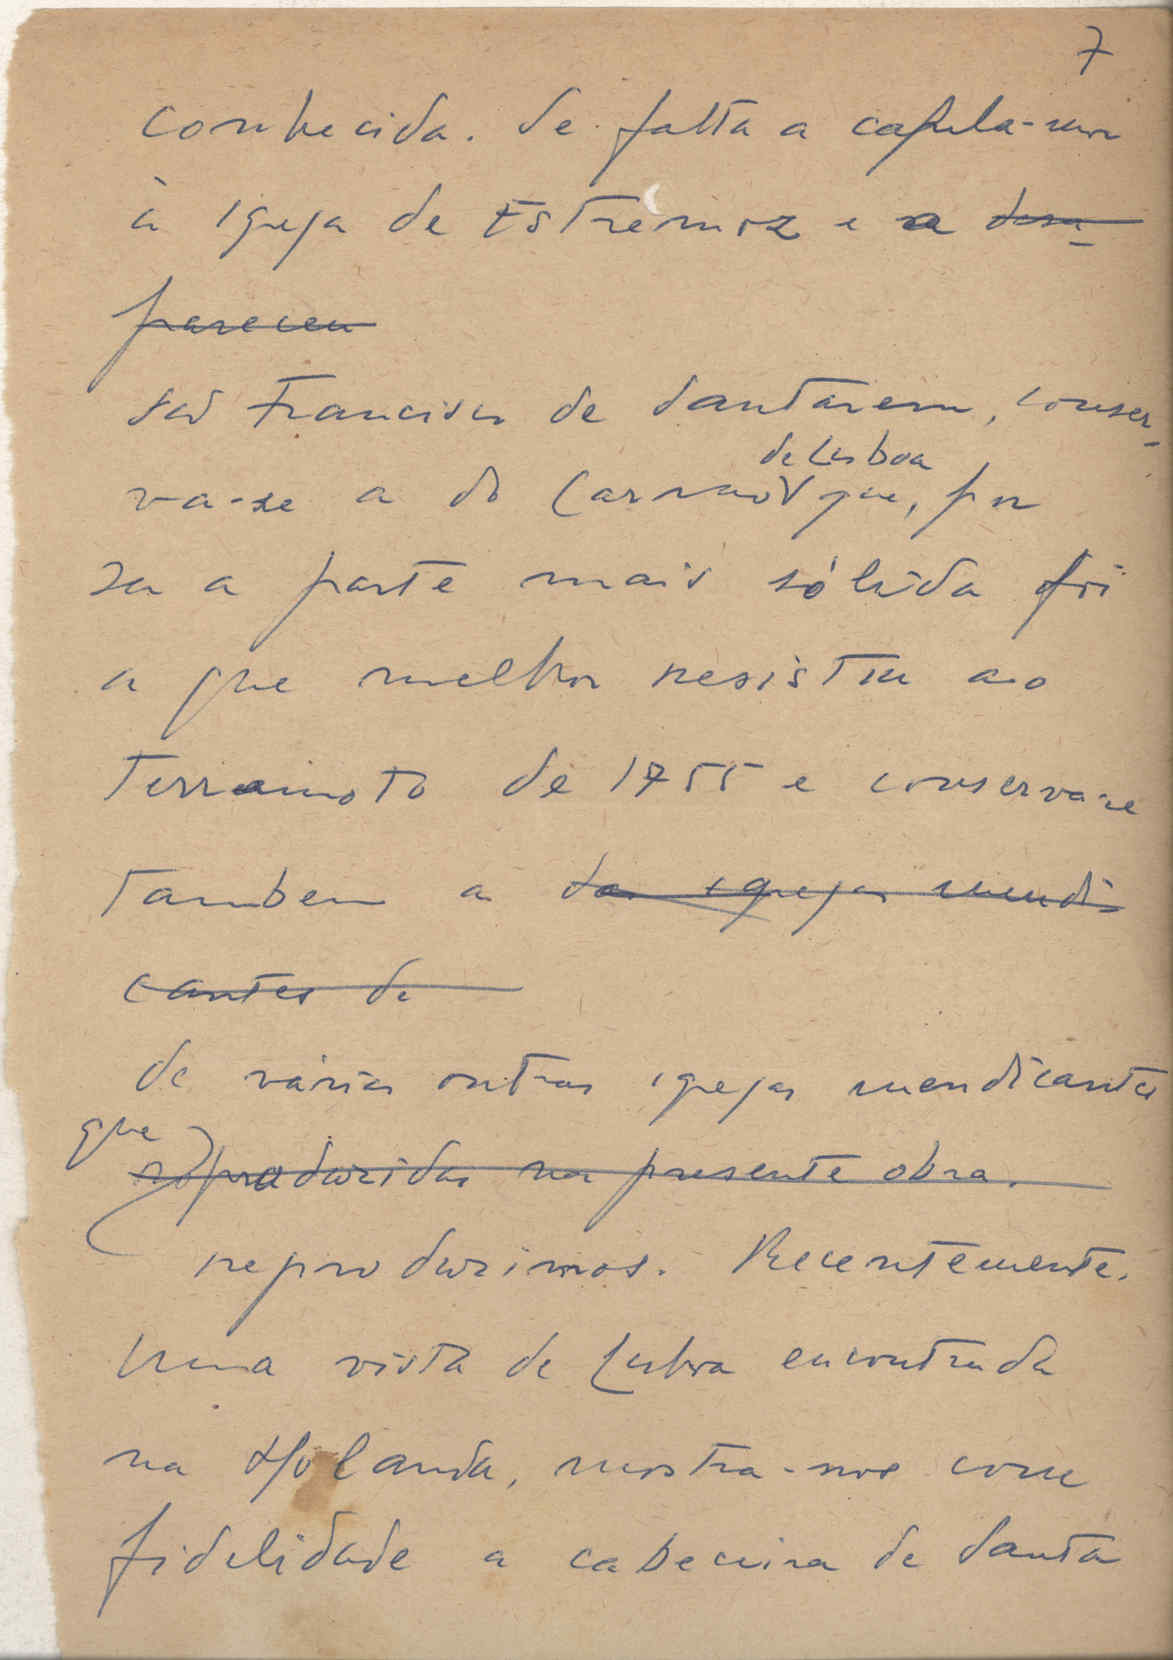 7
conhecida. Se falta a capela-mor
à igreja de Estremoz e a desa-
pareceu
São Francisco de Santarem, conser-
de Lisboa
va-se a do Carmo que, por
ser a parte mais sólida foi
a que melhor resistiu ao
Terramoto de 1755 e conserva-se
Tambem a das igrejas mendi-
cantes de
de várias outras igrejas mendicantes
que
reproduzidas na presente obra.
reproduzimos. Recentemente.
Uma vista de Lisboa encontrada
na Holanda, mostra-nos com
fidelidade a cabeceira de Santa